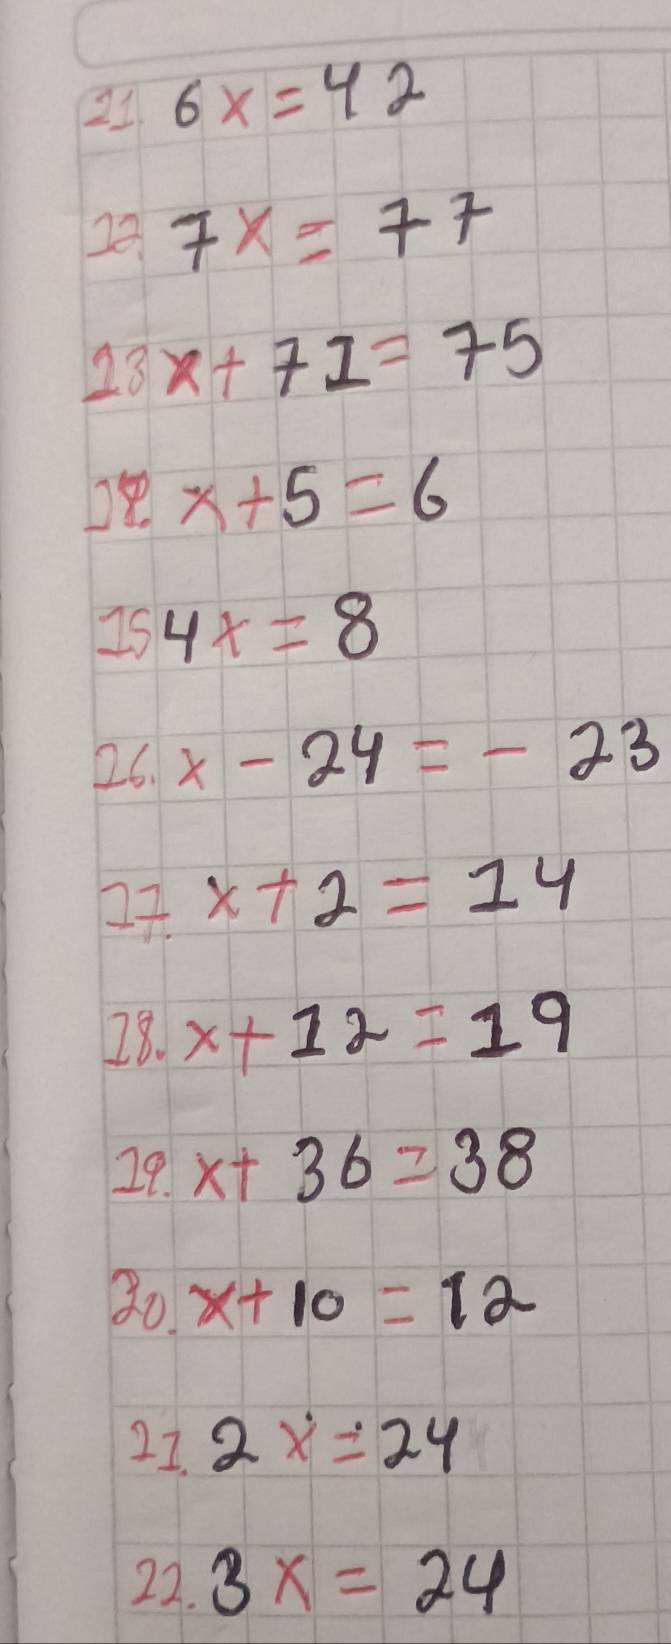 11. 6x = 42
12. 7x = 77
13 x + 71 = 75
14. x + 5 = 6
15 4x = 8
16. x - 24 = - 23
17. x + 2 = 14
18. x + 12 = 19
19. x + 36 = 38
20. x + 10 = 12
21. 2x = 24
22. 3x = 24